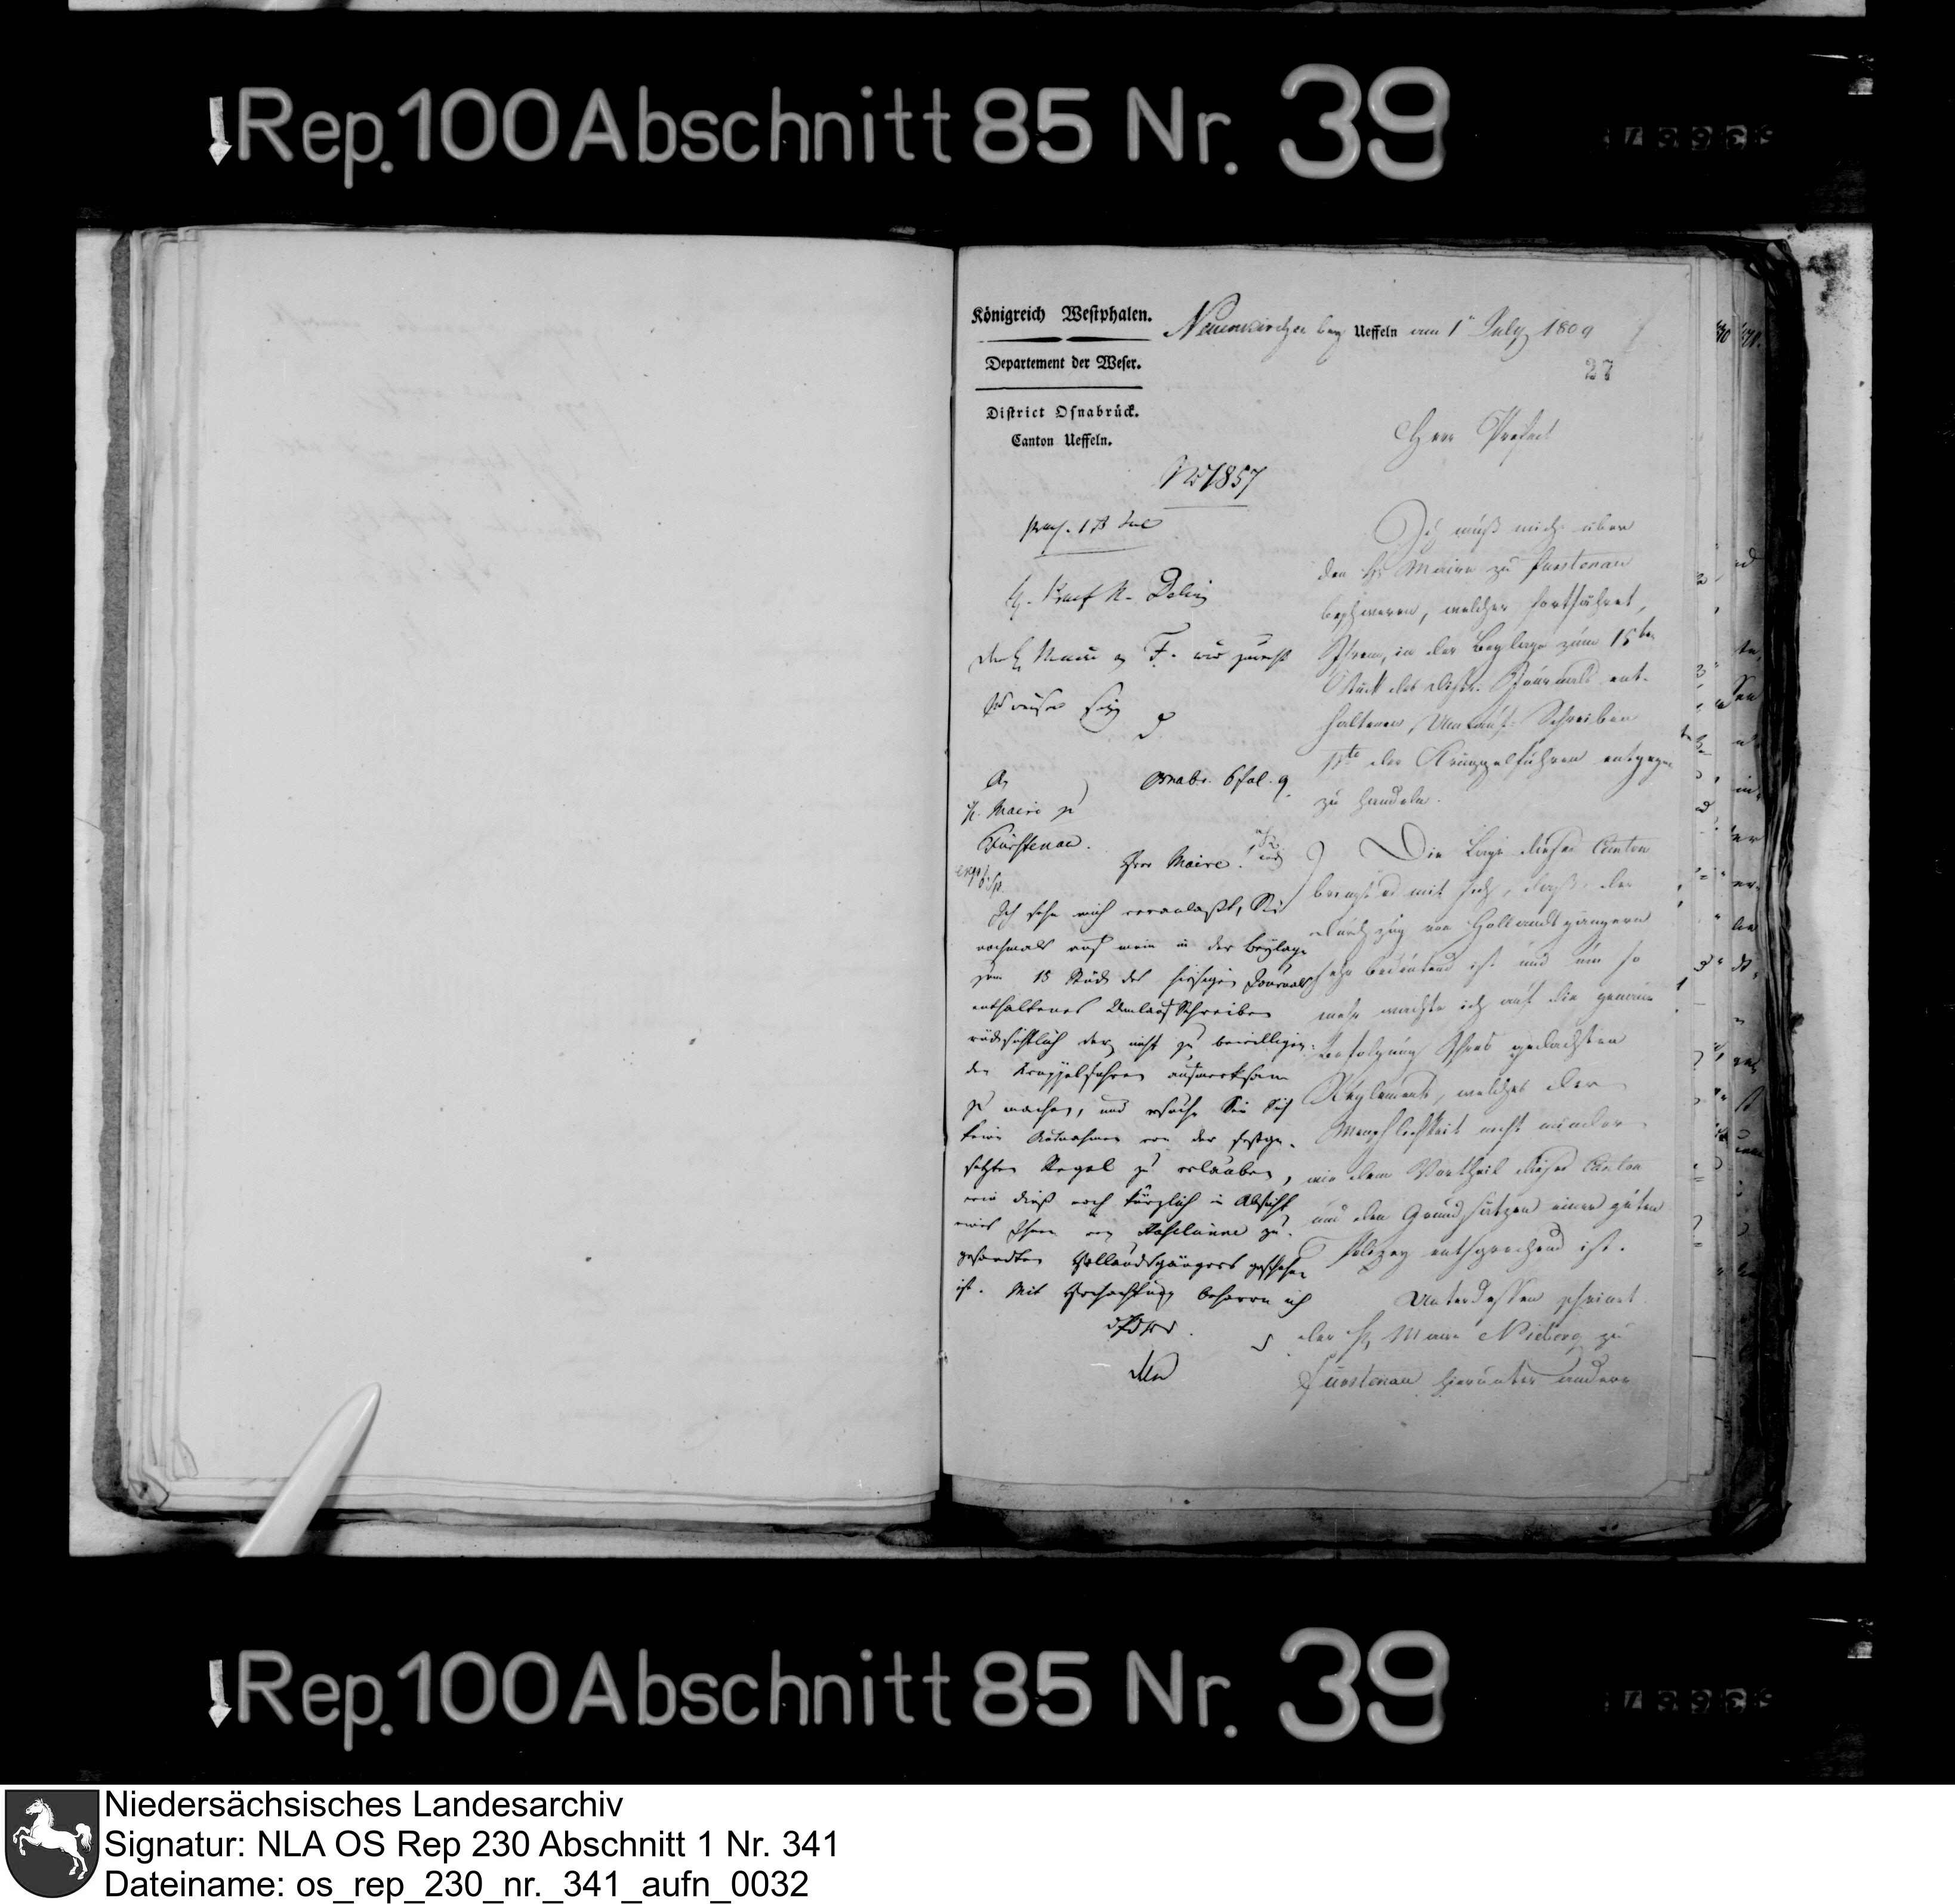 Rep. 100 Abschnitt 85 Nr. 39
Königreich Westphalen.
Departement der Weser.
District Osnabrück.
Canton Ueffeln.
Neuenkirchen bey Ueffeln am 1 July 1809
27
No 1857
den H Maire zu F.
Osnabr. 6 Jul. 9
H. Maire zu
Fürstenau.
Herr Maire.
Ich sehe mich veranlaßt, Sie
nochmals auf mein in der Beylage
zum 15 Stück des hiesigen Journals
enthaltenes Umlauf Schreiben
rücksichtlich der nicht zu bewilligen-
den Krüppelfuhren aufmerksam
zu machen, und ersuche Sie Sich
keine Ausnahmen von der festge-
setzten Regel zu erlauben,
wie dieß noch kürzlich in Absicht
eines Ihnen von Haselünne zu-
gesandten Hollandsgängers geschehen
ist. Mit Hochachtung beharre ich
Herr Präfect
Ich muß mich über
den H. Maire zu Fürstenau
beschweren, welcher fortfähret,
Ihrem, in der Beylage zum 15ten
Stück des Journals ent-
haltenen Umlauf-Schreiben
der Krüppelfuhren entgegen
zu handeln.
Die Lage dieses Canton
bringt es mit sich, daß der
Durchzug von Hollandsgängern
sehr bedeutend ist und um so
mehr wachte ich auf die genaue
Befolgung Ihres gedachten
Reglements, welches der
Menschlichkeit nicht minder
wie dem Vortheil dieses Canton
und den Grundsätzen einer guten
Polizey entsprechend ist.
Unterdessen scheinet
der H. Maire zu
Fürstenau hierunter andere
Rep. 100 Abschnitt 85 Nr. 39
Niedersächsisches Landesarchiv
Signatur: NLA OS Rep 230 Abschnitt 1 Nr. 341
Dateiname: os_rep_230_nr._341_aufn_0032